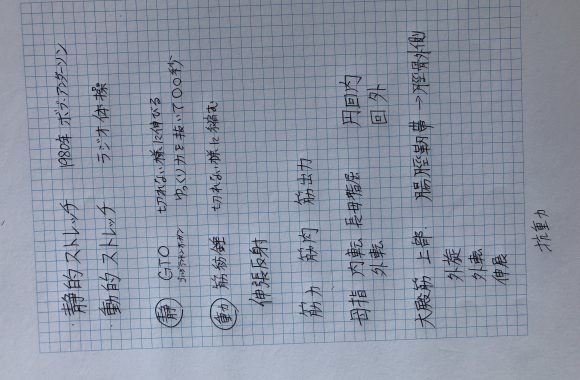 ・静的ストレッチ 1980年 ボブ・アンダーソン
・動的ストレッチ ラジオ体操
静 GTO 切れない様に伸びる
ゴルジケンキカン ゆっくり力を抜いて〇〇秒
動 筋紡錘 切れない様に縮む
伸張反射
筋力 筋肉 筋出力
母指 内転 長母指屈 円回内
外転 回外
大殿筋 上部. 腸脛靭帯 → 脛骨外側
外旋
外転
伸展
抗重力